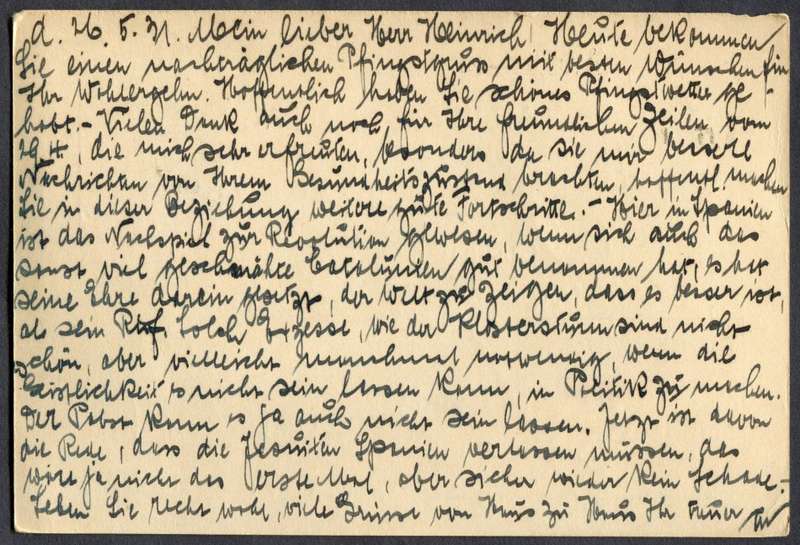 d. 26. 5. 31. Mein lieber Herr Heinrich! Heute bekommen
Sie einen nachträglichen Pfingstgruss mit besten Wünschen für
Ihr Wohlergehn. Hoffentlich haben Sie schönes Pfingstwetter ge-
habt. - Vielen Dank auch noch für Ihre freundlichen Zeilen vom
29.4., die mich sehr erfreuten, besonders da sie mir bessere
Nachrichten von Ihrem Gesundheitszustand brachten, hoffentl. machen
Sie in dieser Beziehung weitere gute Fortschritte. - Hier in Spanien
ist das Nachspiel zur Revolution gewesen, wenn sich auch das
sonst viel geschmähte Catalunien gut benommen hat, es hat
seine Ehre darein gesetzt, der Welt zu zeigen, dass es besser ist,
als sein Ruf. Solch Exzesse, wie der Klostersturm sind nicht
schön, aber vielleicht manchmal notwendig, wenn die
Geistlichkeit es nicht sein lassen kann, in Politik zu machen.
Der Pabst kann es ja auch nicht sein lassen. Jetzt ist davon
die Rede, dass die Jesuiten Spanien verlassen müssen, das
wäre ja nicht das erste Mal, aber sicher wieder kein Schade. -
Leben Sie recht wohl, viele Grüsse von Haus zu Haus Ihr treuer